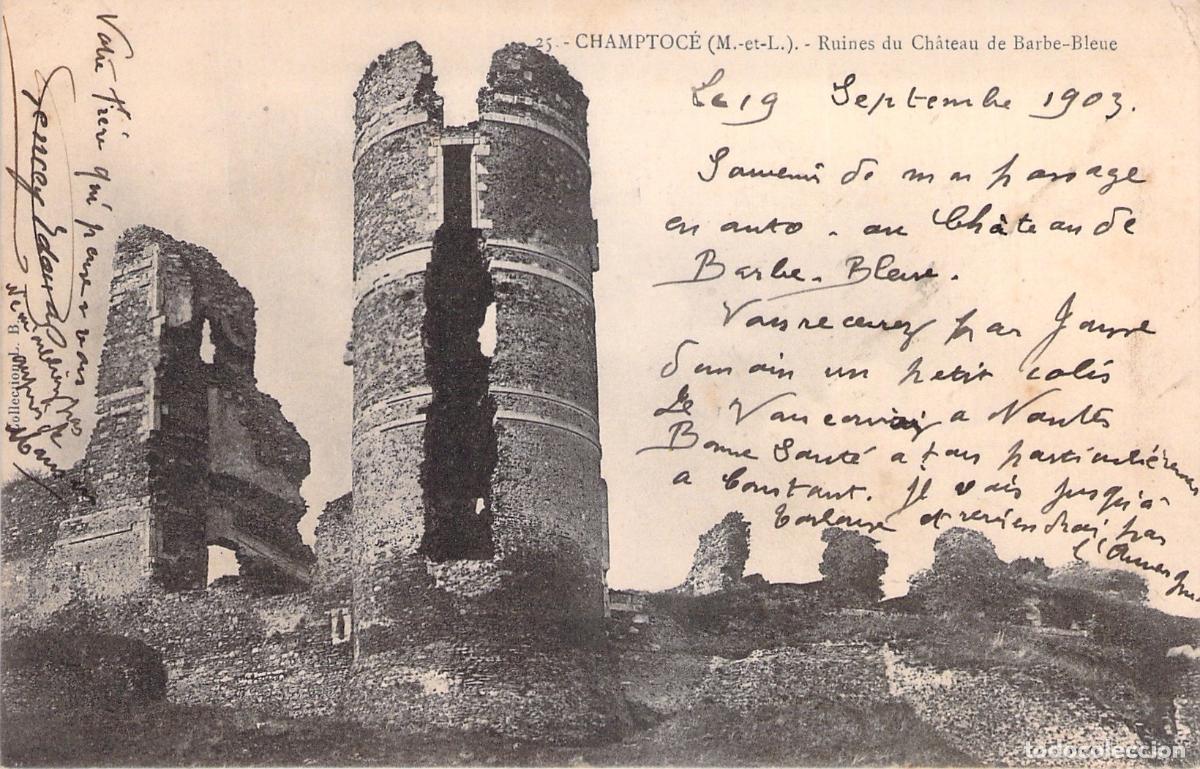 25. - CHAMPTOCÉ (M.-et-L.). - Ruines du Château de Barbe-Bleue
Le 19 Septembre 1903.
Souvenir de mon passage
en auto - au Château de
Barbe-Bleue.
Vous recevrez par Jouve
demain un petit colis
Je vous envoie a Nantes
Bonne Santé a tous particulièrement
a Constant. Je vais jusqu'a
Toulouse et reviendrai par
l'Auvergne
Votre frère qui pense a vous
N'oubliez pas
Collection B.
todocoleccion